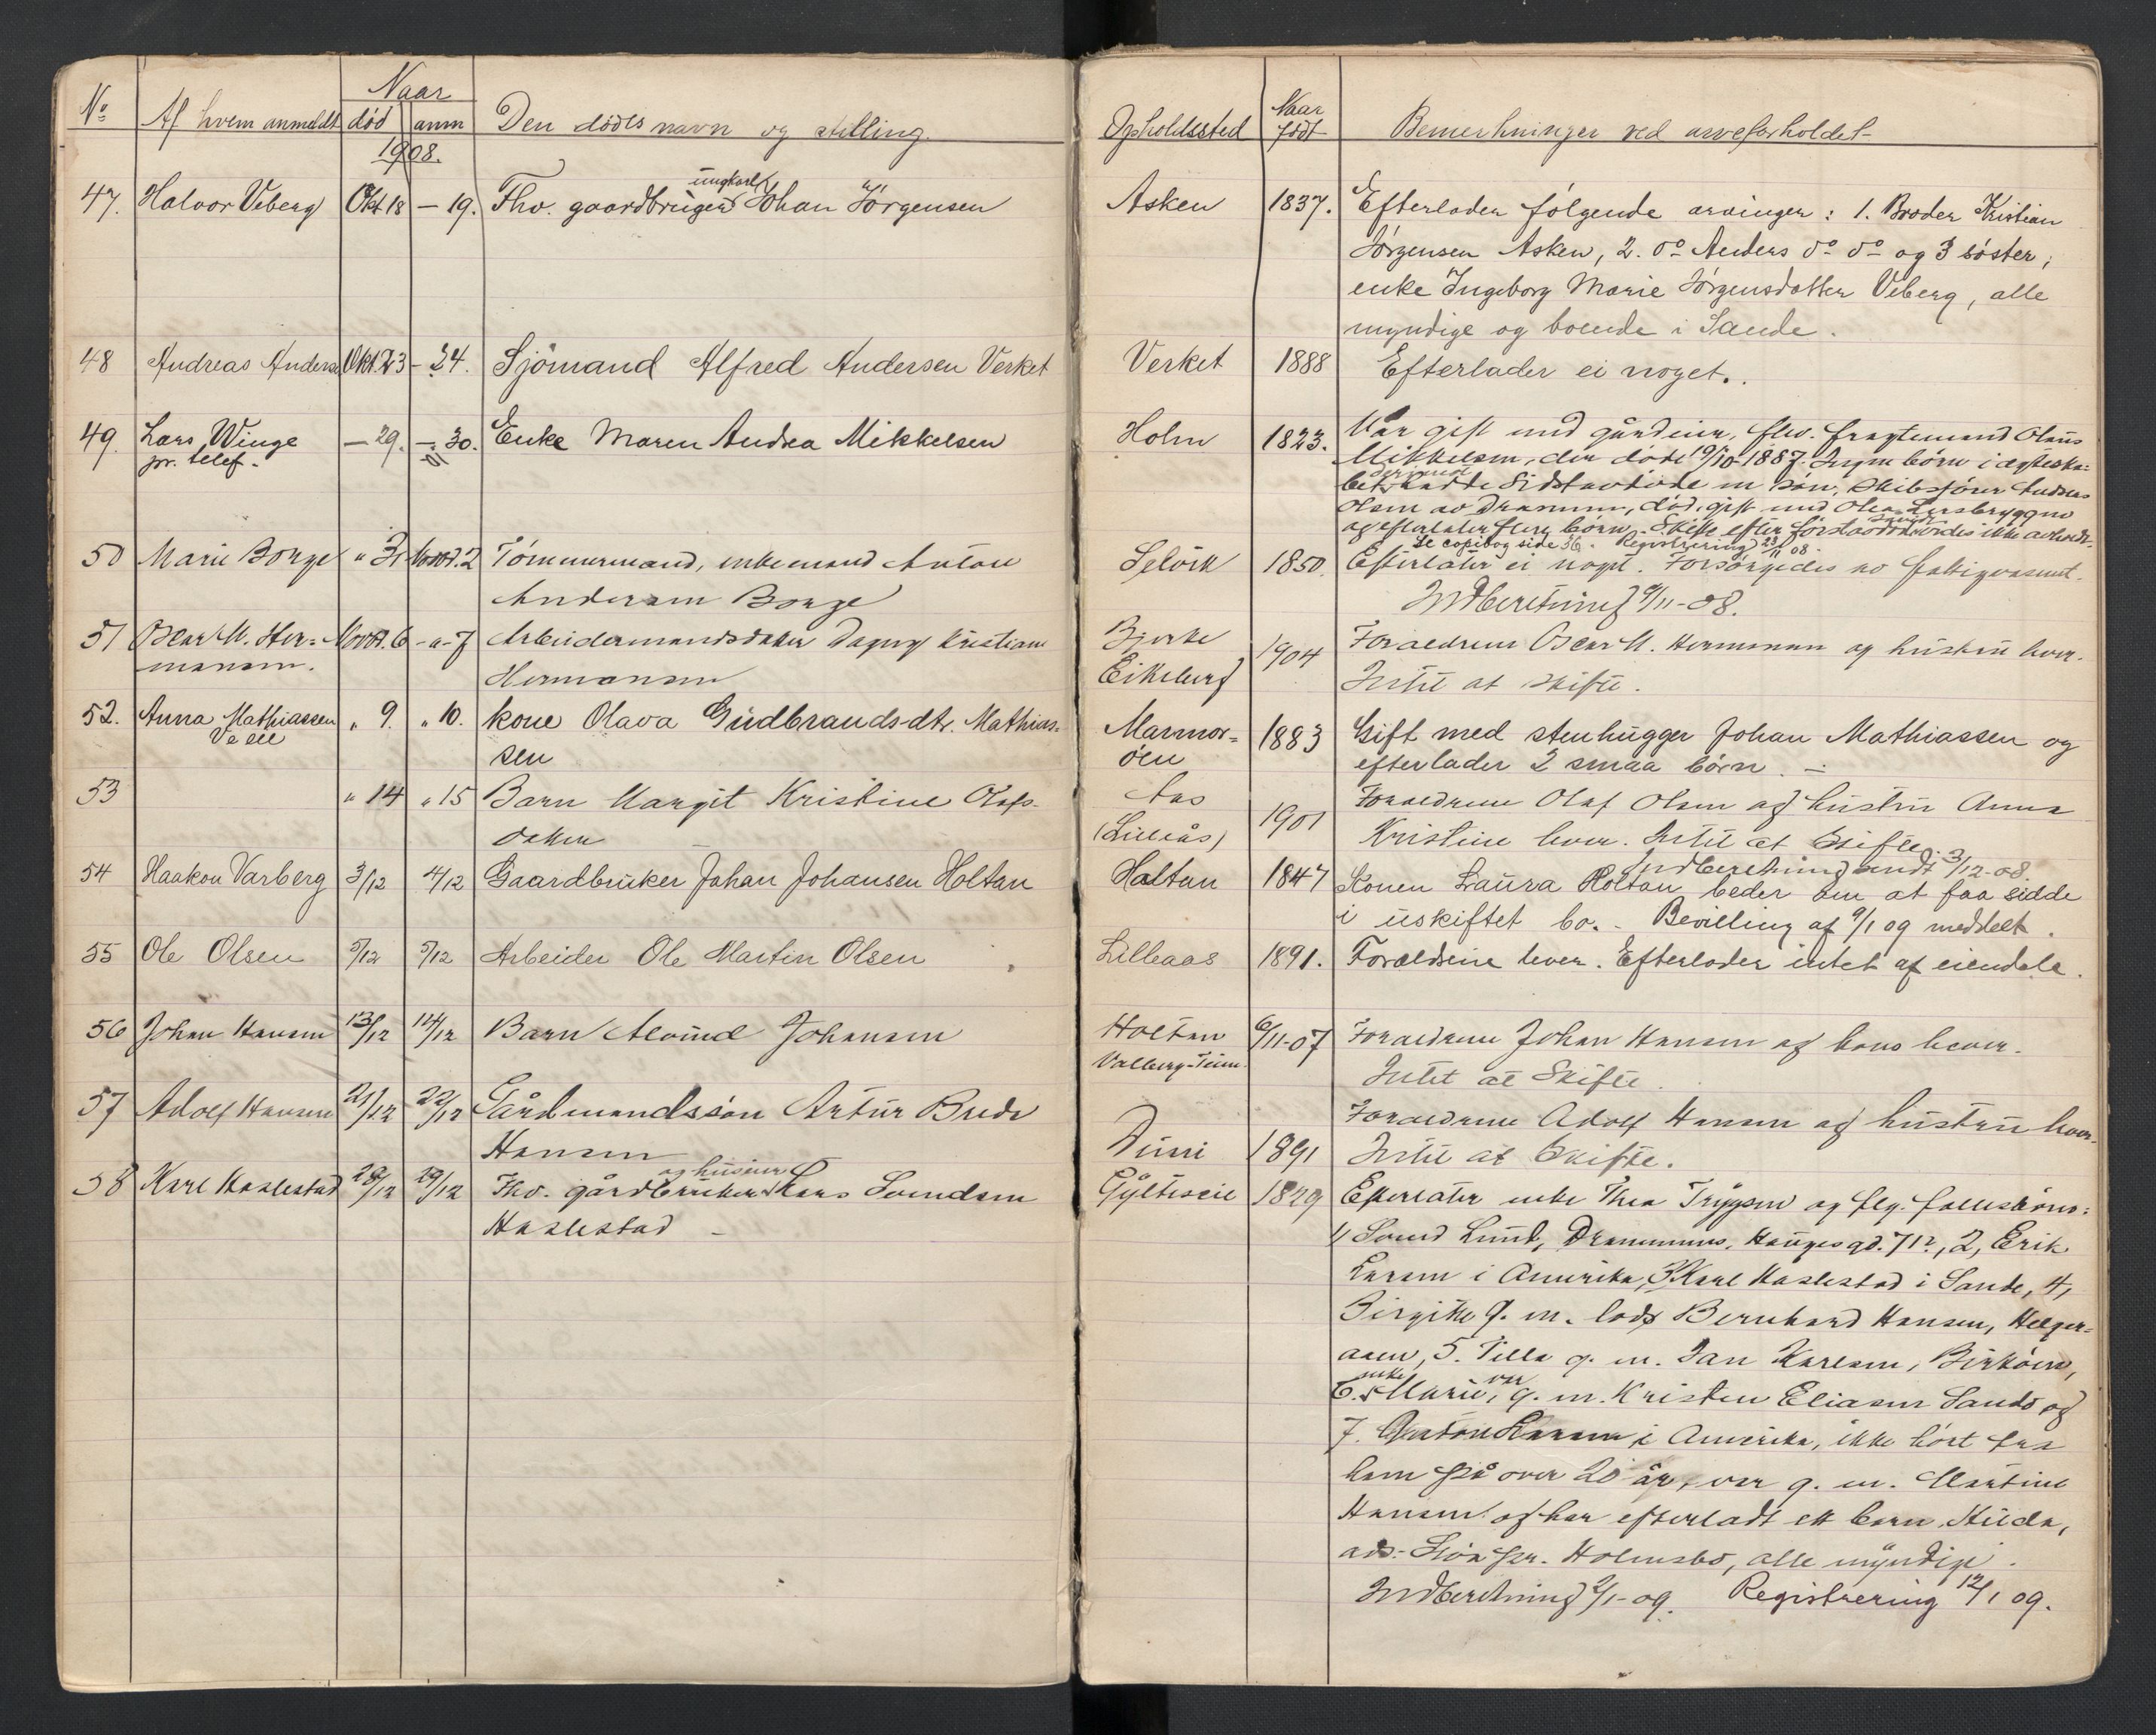 No Af hvem anmeldt Naar død anm Den dødes navn og stilling. Opholdssted Naar født Bemerkninger ved arveforholdet
1908.
47. Halvor Veberg Okt 18 – 19. Fhv. gaardbruger ungkarl Johan Jörgensen Asken 1837. Efterlader følgende arvinger: 1. Broder Kristian
Jörgensen Asken, 2. do Anders do do og 3 söster,
enke Ingeborg Marie Jörgensdatter Veberg, alle
myndige og boende i Sande.
48 Andreas Anderse Okt. 23 – 24. Sjömand Alfred Andersen Verket Verket 1888 Efterlader ei noget.
49. Lars Winge – 29. – 30. Enke Maren Andrea Mikkelsen Holm 1823. Var gift med gårdeier, fhv. fragtemand Olaus
pr. telef.
Mikkelsen, der døde 19/10-1887. Ingen børn i ægteska-
bet, derimod hadde sidstavdöde en sön, skibsförer Andreas
Olsen av Drammen, död, gift med Olea
og efterlater flere børn. Skifte efter förstavdöde ikke
Se copibog side 36. Registrering 23/11 08.
50 Marie Borge " 31 Novbr. 2 Tömmermand, enkemand Anton Selvik 1850. Efterlater ei noget. Forsörgedes av fattigvæsenet.
Andersen Borge Indberetning 9/11-08.
51 Oscar M. Her- Novbr. 6 –"– 7 Arbeidermandsdatter Dagny Kristiane Bjerke 1904 Forældrene Oscar M. Hermansen og hustru lever.
mansen. Hermansen Eikeberg Intet at skifte.
52. Anna Mathiassen " 9. " 10. kone Olava Gudbrands-dtr. Mathias- Marmor- 1883 Gift med stenhugger Johan Mathiassen og
Vølle sen öen efterlader 2 smaa börn. –
53 " 14 " 15 Barn Margit Kristine Olafs- Aas 1901 Forældrene Olaf Olsen og hustru Anna
datter (Lilleås) Kristine lever. Intet at skifte.
Indberetning sendt 3/12-08.
54 Haakon Varberg 3/12 4/12 Gaardbruker Johan Johansen Holtan Holtan 1847 Konen Laura Holtan beder om at faa sidde
i uskiftet bo. - Bevilling af 9/1 09 meddelt.
55 Ole Olsen 5/12 5/12 Arbeider Ole Martin Olsen Lilleaas 1891. Forældrene lever. Efterlader intet af eiendele.
56 Johan Hansen 13/12 14/12 Barn Alvind Johansen Holtan 6/11-07 Forældrene Johan Hansen og kone lever.
Valberg-
Intet at skifte.
57 Adolf Hansen 21/12 22/12 Gårdmandssön Artur Brede Forældrene Adolf Hansen og hustru lever.
Hansen 1891 Intet at skifte.
58 Karl Haslestad 28/12 29/12 Fhv. gårdbruker og husmand Lars Svendsen 1829 Efterlater enke Thea Trygsen og flg. fællesbörn:
Haslestad – 1, Svend Lund, Drammens, Haugesgd. 712, 2, Erik
Larsen i Amerika, 3, Karl Haslestad i Sande, 4,
Birgitte g. m. lods Bernhard Hansen, Helger-
aaen, 5. Tilla g. m. Jan Karlsen, Birköen,
6. enke Marie, var g. m. Kristen Eliasen Sande og
7. Anton Larsen i Amerika, ikke hört fra
ham på over 20 år, var g. m. Martine
Hansen og har efterladt ett barn, Hilda,
ads: pr. Holmsbo, alle myndige.
Indberetning 2/1-09. Registrering 12/1 09.